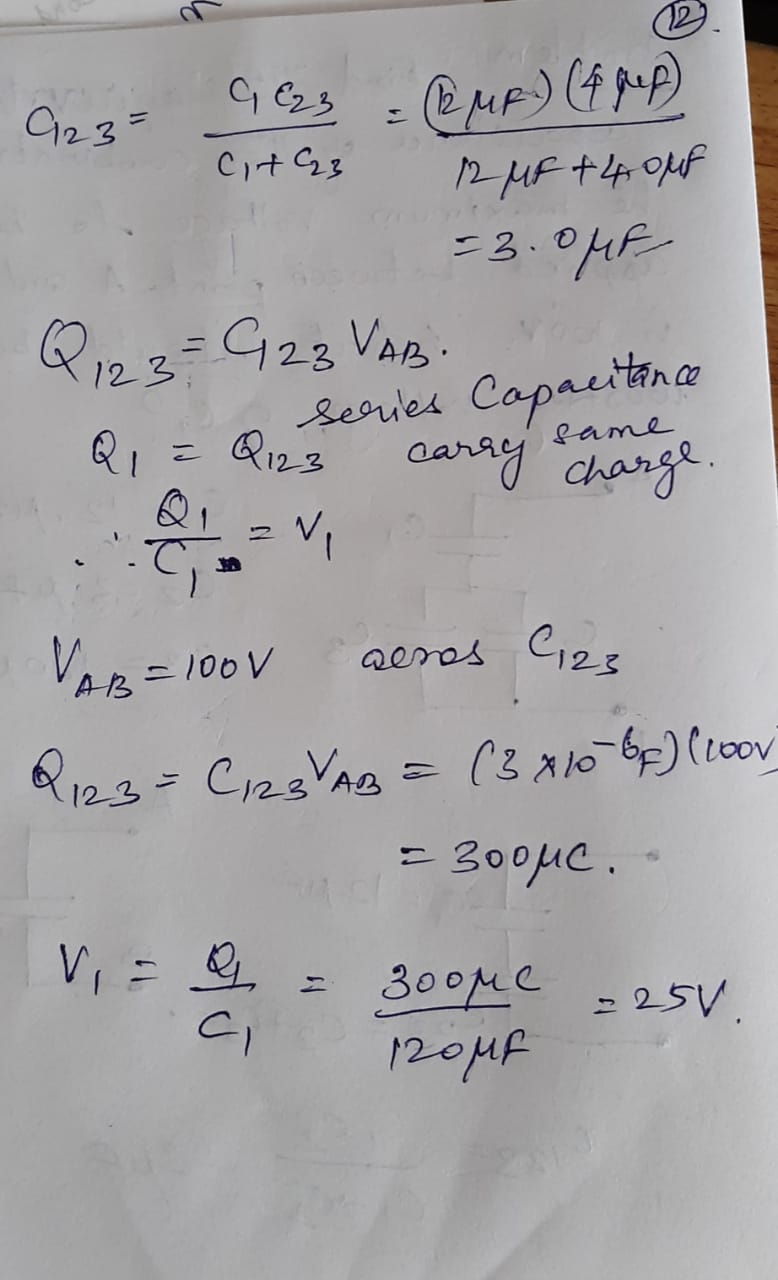 (12).
C123 = C1 C23 / C1 + C23 = (12 μF) (4 μF) / 12 μF + 4.0μF
= 3.0 μF
Q123 = C123 VAB.
series Capacitance
Q1 = Q123 carry same
charge.
∴ Q1 / C1 = V1
VAB = 100V across C123
Q123 = C123 VAB = (3 x10-6F) (100V)
= 300μC.
V1 = Q1 / C1 = 300μC / 120μF = 25V.